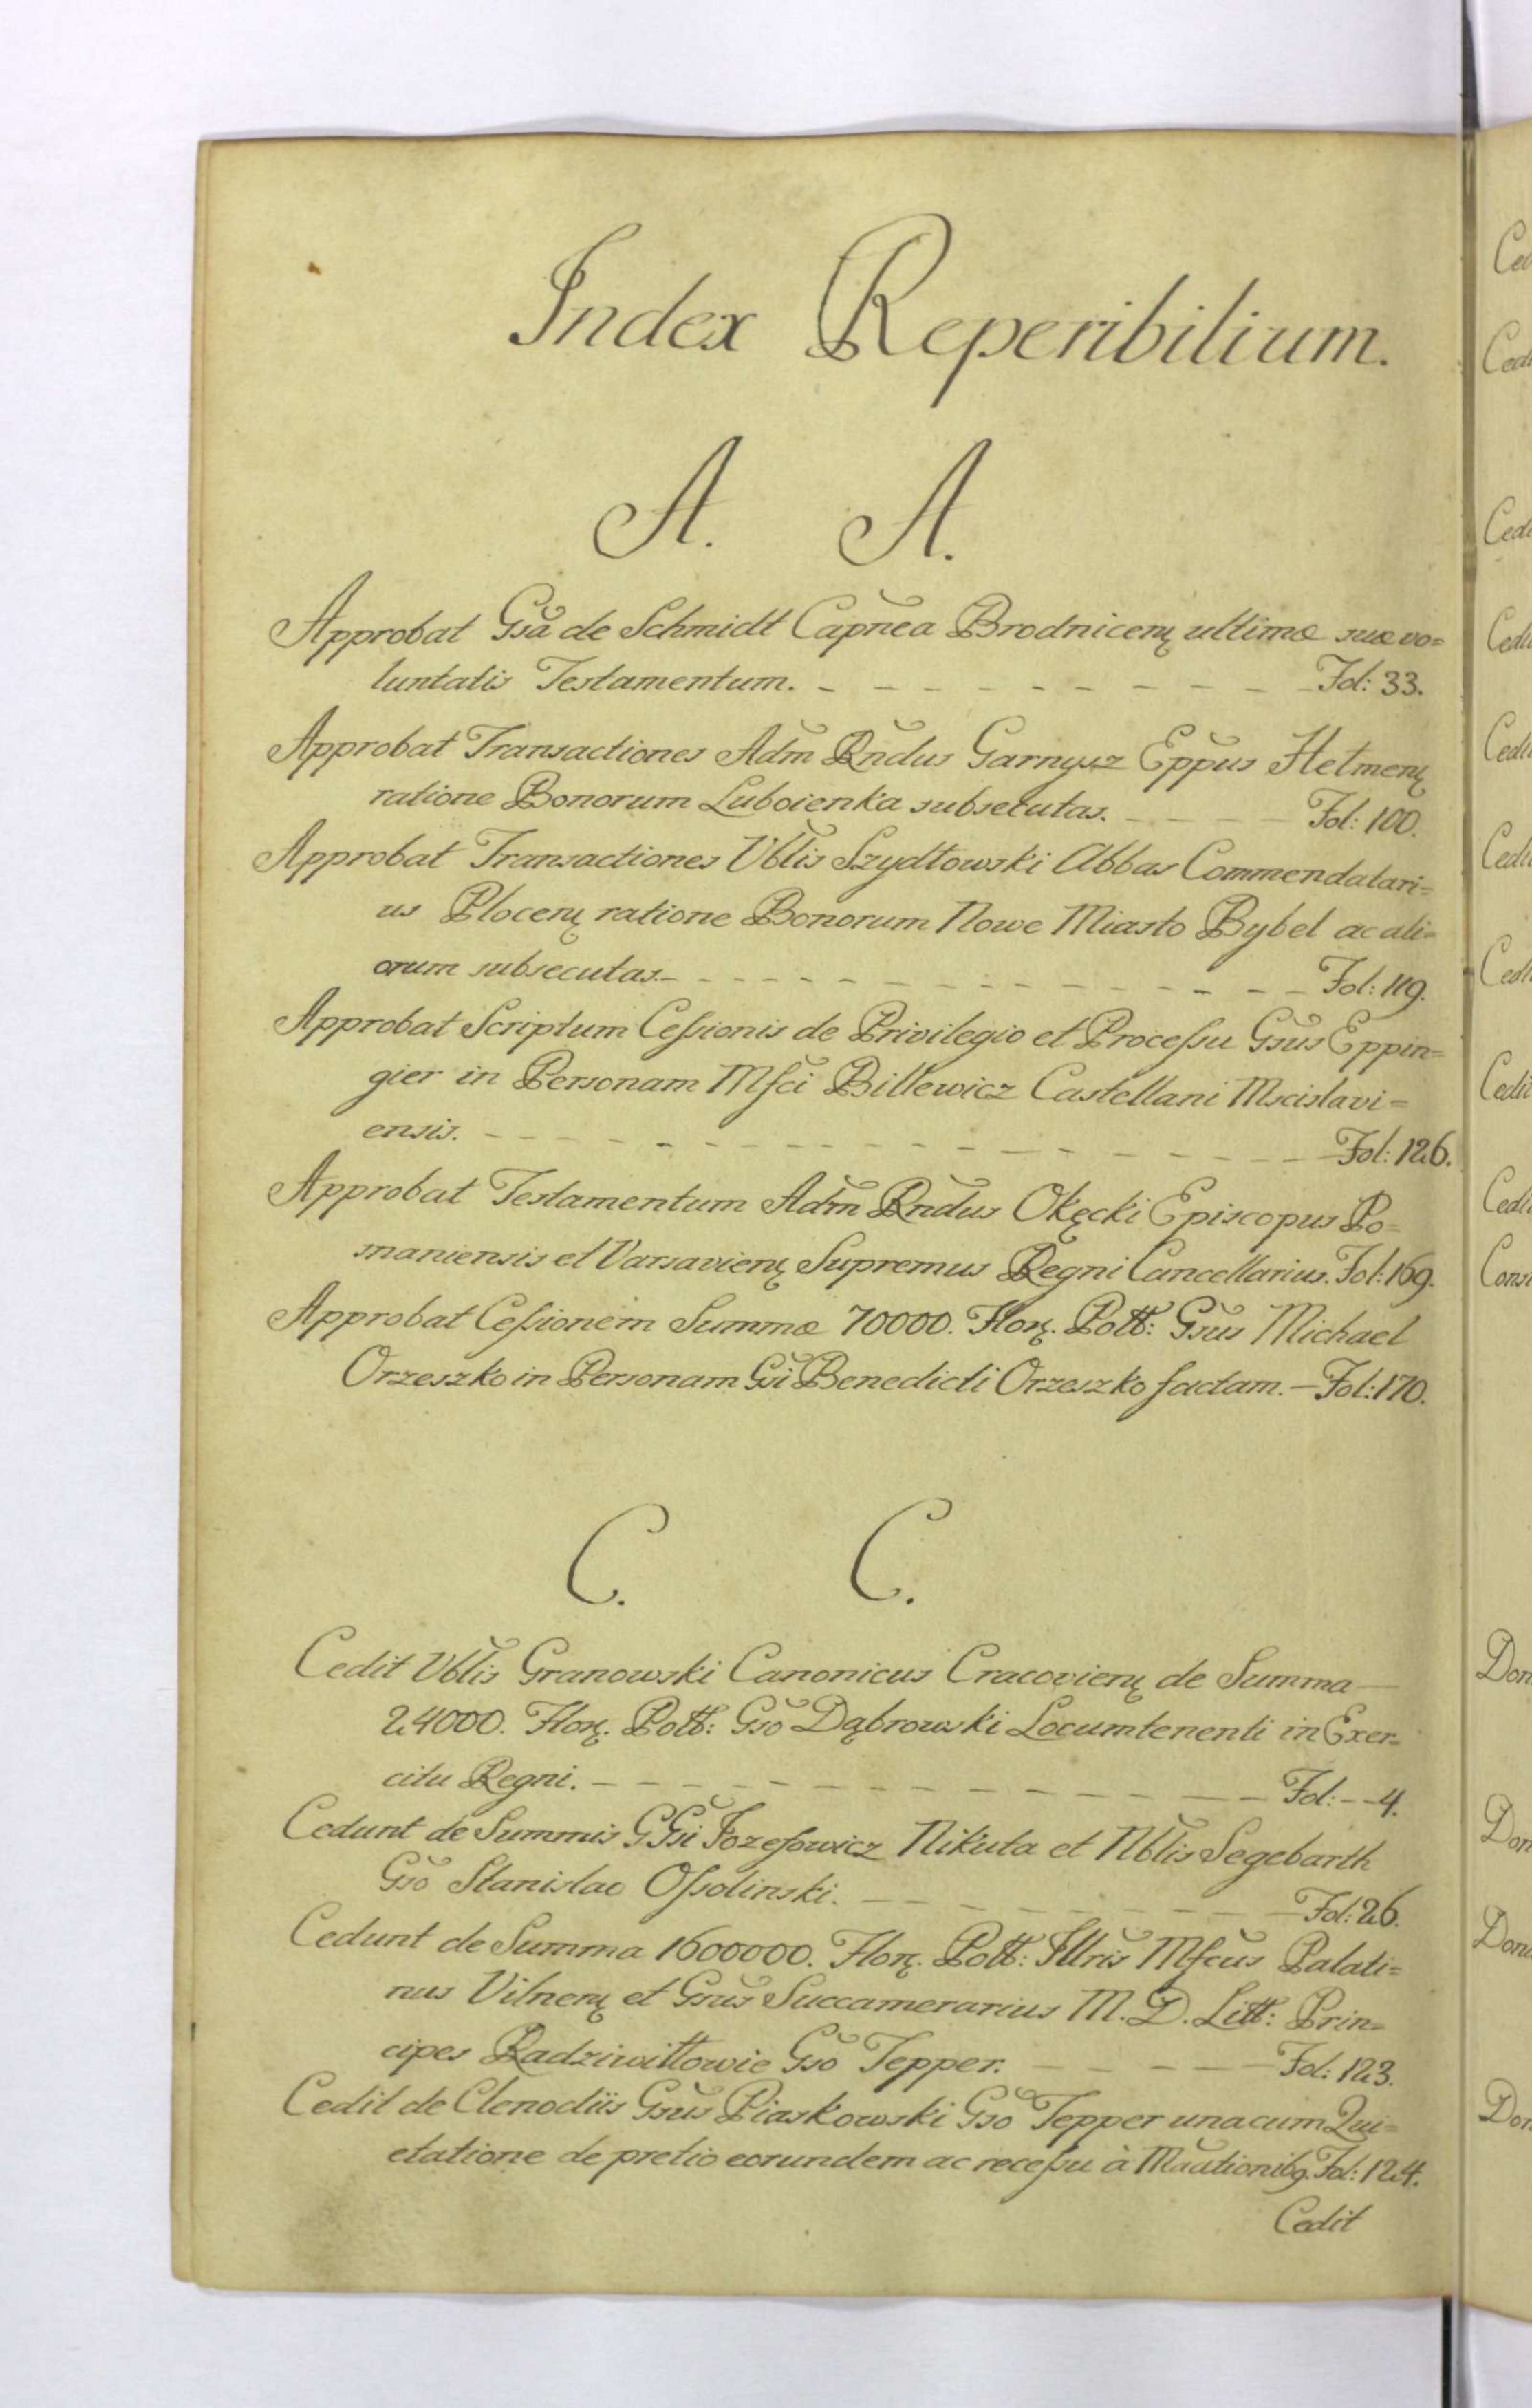 Index Reperibilium.
A. A.
Approbat Gsa de Schmidt Capnea Brodnicen̨ ultimæ suæ vo=
luntatis Testamentum. - - - - - - - - - - Fol: 33.
Approbat Transactiones Adm Rndus Garnysz Eppus Hetmen̨
ratione Bonorum Luboienka subsecutas. - - - - Fol: 100.
Approbat Transactiones Vblis Szydłowski Abbas Commendatari=
us Plocen̨ ratione Bonorum Nowe Miasto Bybel ac ali=
orum subsecutas. - - - - - - - - - - - - - Fol: 119.
Approbat Scriptum Ceſsionis de Privilegio et Proceſsu Gsus Eppin=
gier in Personam Mſci Billewicz Castellani Mscislavi=
ensis. - - - - - - - - - - - - - - - - Fol: 126.
Approbat Testamentum Adm Rndus Okęcki Episcopus Po=
snaniensis et Varsavien̨ Supremus Regni Cancellarius. Fol: 169.
Approbat Ceſsionem Summæ 70000. Flor̨. Poll: Gsus Michael
Orzeszko in Personam Gsi Benedicti Orzeszko factam. - Fol: 170.
C. C.
Cedit Vblis Granowski Canonicus Cracovien̨ de Summa
24000. Flor̨. Poll: Gso Dąbrowski Locumtenenti in Exer=
citu Regni. - - - - - - - - - - - - - Fol: - - 4.
Cedunt de Summis GGsi Jozefowicz Nikuta et Nblis Segebarth
Gso Stanislao Oſsolinski. - - - - - - - - Fol: 26.
Cedunt de Summa 1600000. Flor̨. Poll: Illris Mſcus Palati=
nus Vilnen̨ et Gsus Succamerarius M. D. Litt: Prin=
cipes Radziwiłłowie Gso Tepper. - - - - - Fol: 123.
Cedit de Clenodiis Gsus Piaskowski Gso Tepper unacum Qui=
etatione de pretio eorundem ac receſsu à Maationibꝫ. Fol: 124.
Cedit